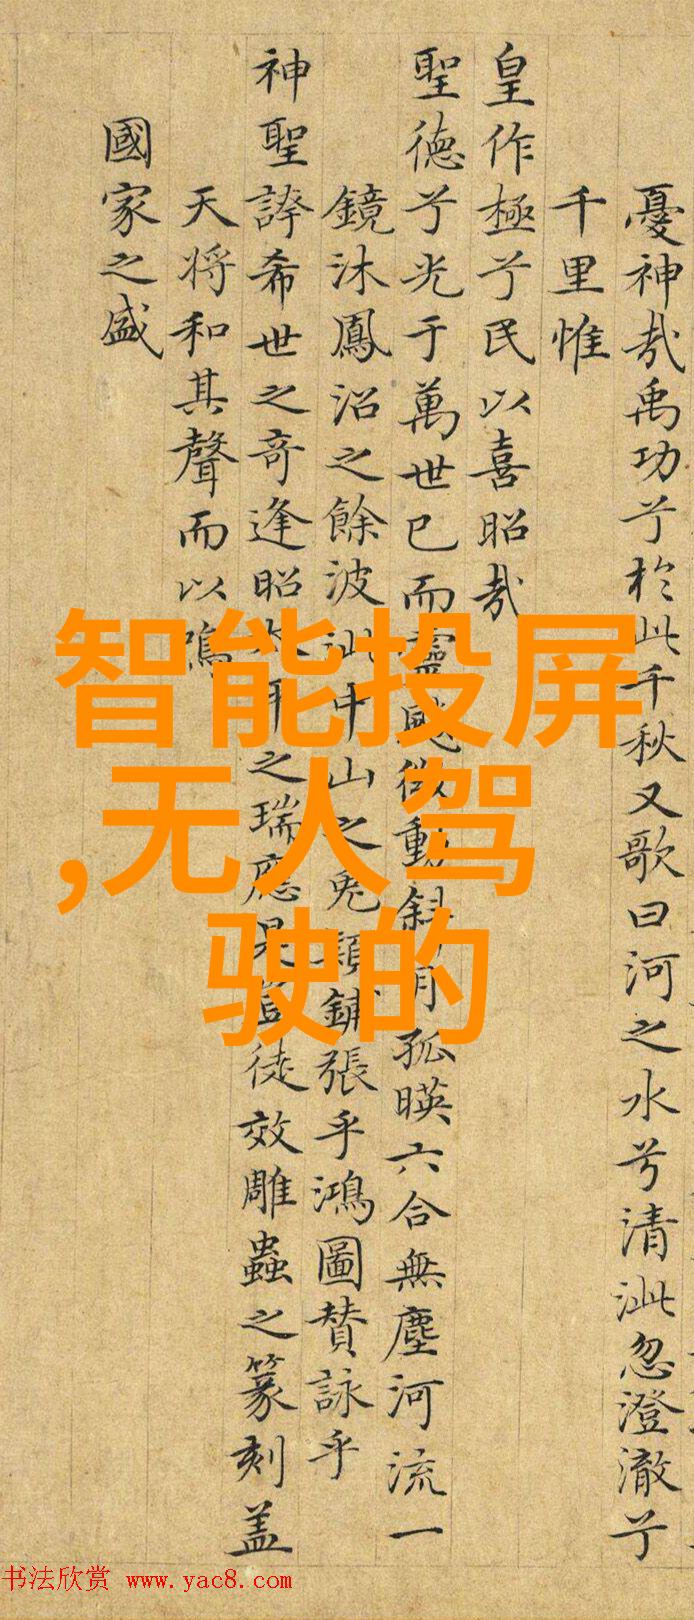 憂神哉禹功兮於此千秋又歌曰河之水兮清泚忽澄澈兮
千里惟
皇作極兮民以喜昭哉
聖德兮光于萬世已而靈飈微動斜月孤暎六合無塵河流一
鏡沐鳳沼之餘波泚中山之兔穎鋪張乎鴻圖贊詠乎
神聖誇希世之奇逢昭太平之瑞應是豈徒效雕蟲之篆刻盖
天将和其聲而以鳴
國家之盛
智能投屏
,无人驾
驶的
书法欣赏 www.yac8.com